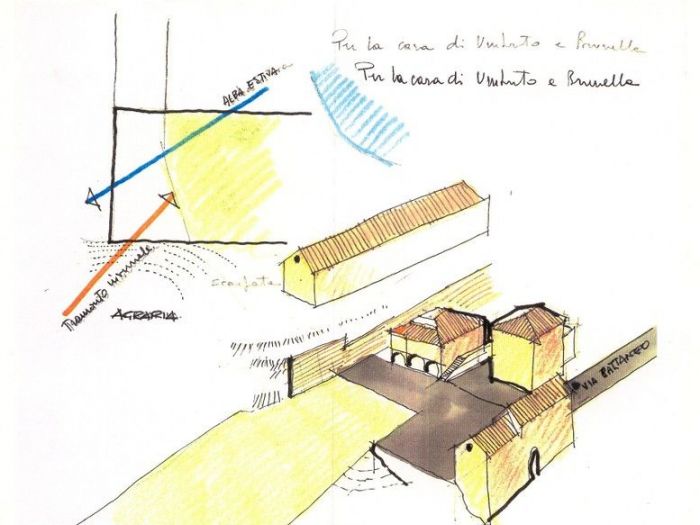 Per la casa di Umberto e Brunella
Per la casa di Umberto e Brunella
ALBA ESTIVA
Tramonto invernale
AGRARIA
scarpata
VIA